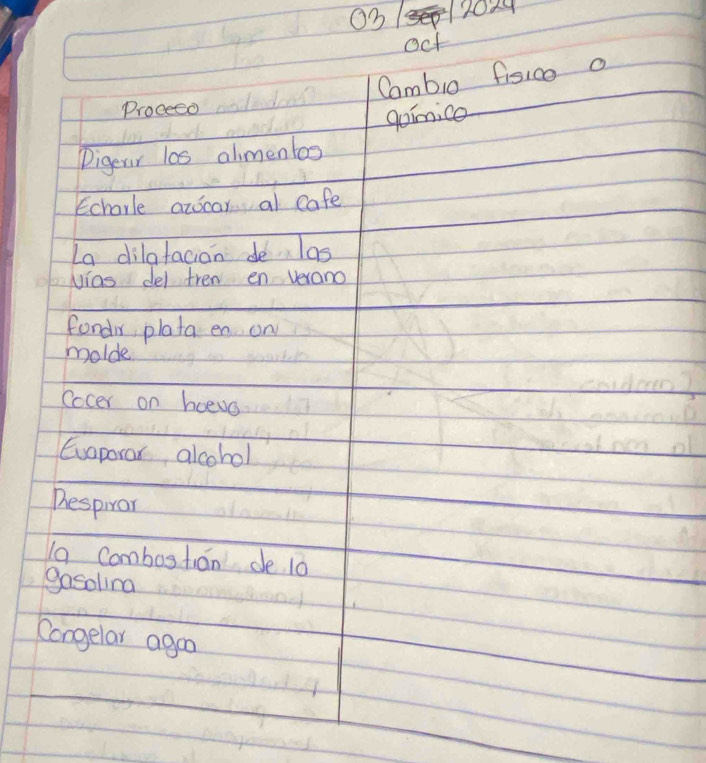 03/sep/2024
oct
Proceso
Cambio fisico o
químico
Digerir los alimentos
Echarle azúcar al cafe
La dilatación de las
vías del tren en verano
fundir plata en un
molde
Cocer un huevo
Evaporar alcohol
Respirar
la combustión de la
gasolina
Congelar agua